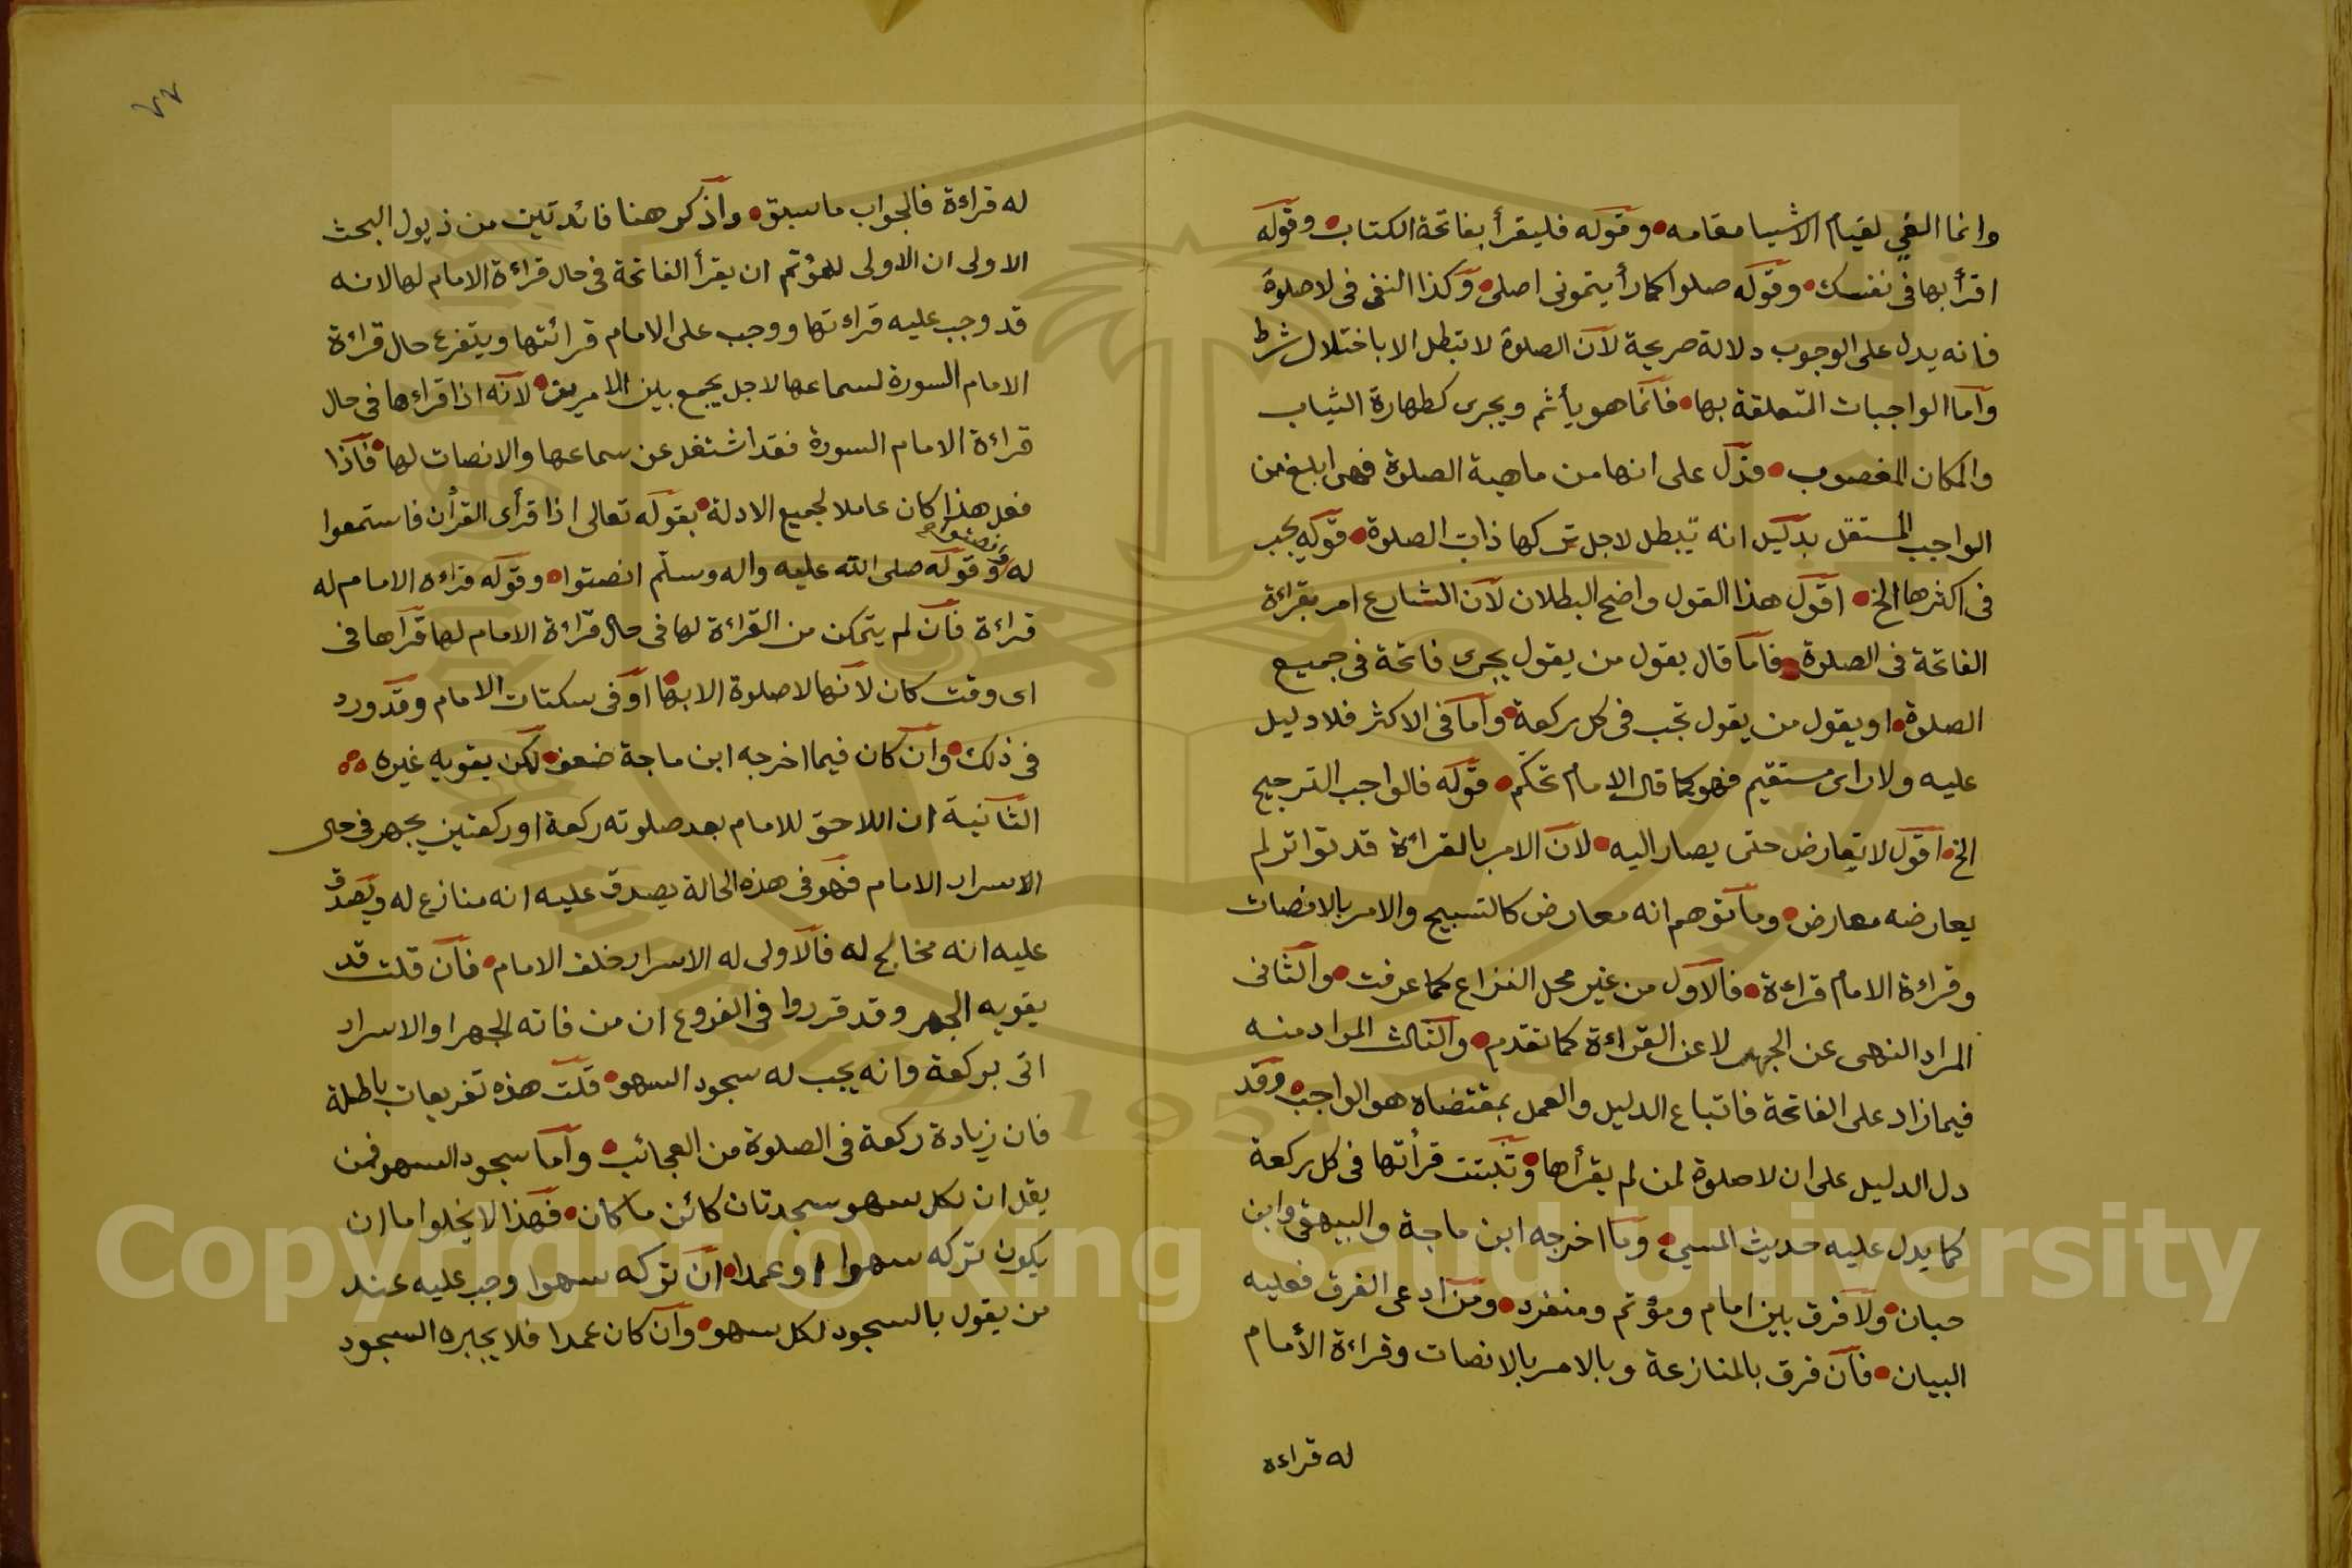 وانما الغي لقيام الاشيا مقامه وقوله فليقرأ بفاتحة الكتاب وقوله
اقرأ بها فى نفسك وقوله صلوا كما رأيتمونى اصلى وكذا النفى فى لا صلوة
فانه يدل على الوجوب دلالة صريحة لان الصلوة لا تبطل الا باختلال شرط
واما الواجبات المتعلقة بها فانما هو يأثم ويجرى كطهارة الثياب
والمكان المغصوب فدل على انها من ماهية الصلوة فهى ابلغ من
الواجب المستقل بدليل انه تبطل لاجل تركها ذات الصلوة قوله يجب
فى اكثرها الخ اقول هذا القول واضح البطلان لان الشارع امر بقراءة
الفاتحة فى الصلوة فاما قال يقول من يقول يجرى فاتحة فى جميع
الصلوة او يقول من يقول تجب فى كل ركعة واما فى الاكثر فلا دليل
عليه ولا راى مستقيم فهو كما قال الامام تحكّم قوله فالواجب الترجيح
الخ اقول لا تعارض حتى يصار اليه لان الامر بالقراءة قد تواتر لم
يعارضه معارض وما توهم انه معارض كالتسبيح والامر بالانصات
وقراءة الامام قراءة فالاول من غير محل النزاع كما عرفت والثانى
المراد النهى عن الجهر لا عن القراءة كما تقدم والثالث المراد منه
فيما زاد على الفاتحة فاتباع الدليل والعمل بمقتضاه هو الواجب وقد
دل الدليل على ان لا صلوة لمن لم يقرأها وتثبت قرأتها فى كل ركعة
كما يدل عليه حديث المسي وما اخرجه ابن ماجة والبيهقى وابن
حبان ولا فرق بين امام ومؤتم ومنفرد ومن ادعى الفرق فعليه
البيان فان فرق بالمنازعة وبالامر بالانصات وقراءة الأمام
له قراءة
٧٧
له قراءة فالجواب ما سبق واذكر هنا فائدتين من ذيول البحث
الاولى ان الاولى للمؤتم ان يقرأ الفاتحة فى حال قراءة الامام لها لانه
قد وجب عليه قراءتها ووجب على الامام قرائتها ويتفرع حال قراءة
الامام السورة لسماعها لاجل يجمع بين الامرين لانه اذا قراءها فى حال
قراءة الامام السورة فقد اشتغل عن سماعها والانصات لها فاذا
فعل هذا كان عاملا لجميع الادلة بقوله تعالى اذا قرأى القرأن فاستمعوا
له وانصتوا وقوله صلى الله عليه واله وسلّم انصتوا وقوله قراءة الامام له
قراءة فان لم يتمكن من القراءة لها فى حال قراءة الامام لها قرأها فى
اى وقت كان لانها لا صلوة الا بها او فى سكتات الامام وقد ورد
فى ذلك وان كان فيما اخرجه ابن ماجة ضعف لكن يقويه غيره
الثانية ان اللاحق للامام بعد صلوته ركعة او ركعتين يجهر فى حال
الاسرار الامام فهو فى هذه الحالة يصدق عليه انه منازع له ويصدق
عليه انه مخالج له فالاولى له الاسرار خلف الامام فان قلت قد
يقويه الجهر وقد قرروا فى الفروع ان من فاته الجهر او الاسرار
اتى بركعة وانه يجب له سجود السهو قلت هذه تفريعات باطلة
فان زيادة ركعة فى الصلوة من العجائب واما سجود السهو فمن
يقل ان لكل سهو سجدتان كائن ما كان فهذا لا يخلوا اما ان
يكون تركه سهوا او عمدا ان تركه سهوا وجب عليه عند
من يقول بالسجود لكل سهو وان كان عمدا فلا يجبره السجود
Copyright © King Saud University
1957